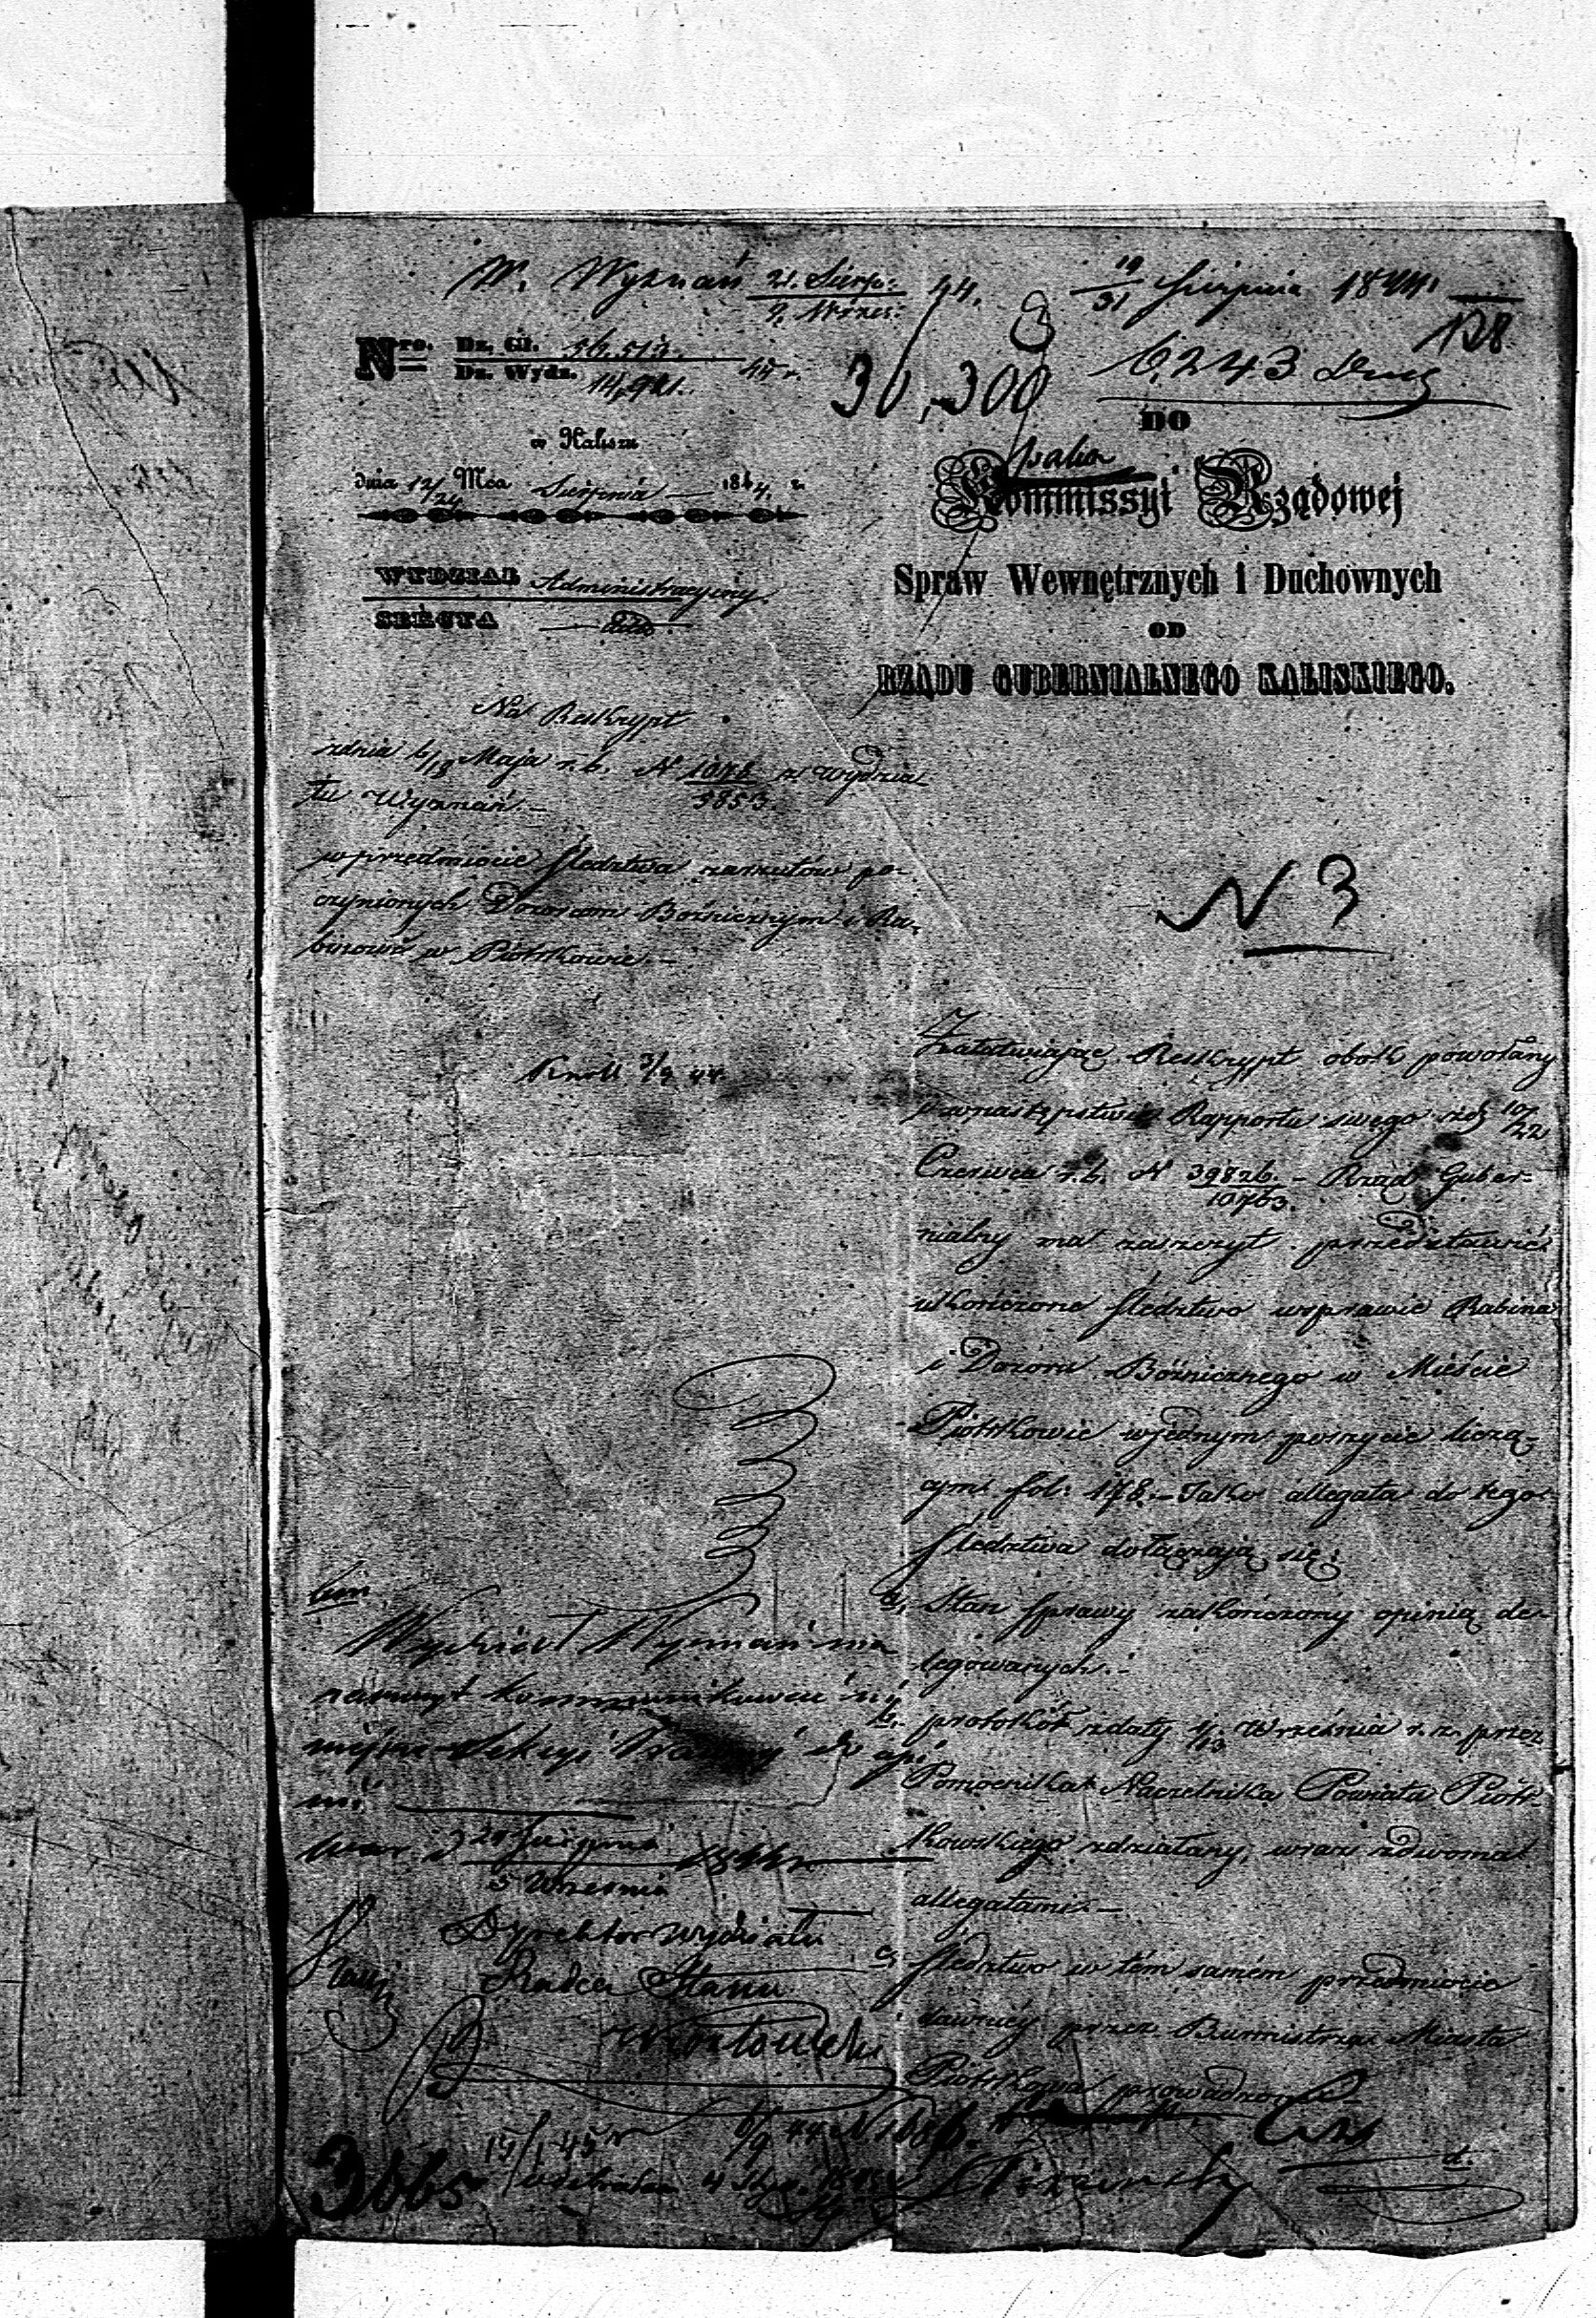 W. Wyznań 21. Sierp: / 2. Wrześ: 44.
19/31 Sierpnia 1844.
128
30,300
6,243 Dus
Nro. Dz. Gł. 56,513. / Dz. Wydz. 14,921. 44 r.
w Kaliszu
dnia 12/24 Mca Sierpnia 1844. r.
WYDZIAŁ Administracyjny.
SEKCYA
DO
Kommissyi Rządowej
Spraw Wewnętrznych i Duchownych
OD
RZĄDU GUBERNIALNEGO KALISKIEGO.
Na Reskrypt
zdnia 6/18 Maja r.b. N 1078/5853 z Wydzia-
łu Wyznań.-
w przedmiocie śledztwa zarzutów po-
czynionych Dozorcom Bożnicznym i Ra-
binowi w Piotrkowie.-
N 3
Knoll 3/9 44.
Załatwiając Reskrypt obok powołany
i wnastępstwie Rapportu swego zd. 10/22
Czerwca r.b. N 39826./10763. - Rząd Guber-
nialny ma zaszczyt przedstawić
ukończone śledztwo wsprawie Rabina
i Dozoru Bóżnicznego w Mieście
Piotrkowie wjednym poszycie liczą-
cym fol: 178.- Jako allegata do tego
śledztwa dołączają się:
a, Stan sprawy zakończony opinią de-
legowanych.-
b, protokół zdaty 1/13 Września r.z. przez
Pomocnika Naczelnika Powiatu Piotr-
kowskiego zdziałany, wraz zdwoma
allegatami.-
c, śledztwo w tém samém przedmiocie
dawniéj przez Burmistrza Miasta
Piotrkowa prowadzone
Wydział Wyznań ma
zaszczyt kommunikować ni-
niejsze Sekcyi Prawnéj do opi-
nii.
War. d 24 Sierpnia / 5 Września 1844 r
Dyrektor Wydziału
Radca Stanu
6/9 44 N 686.
15/1 45 r
3665